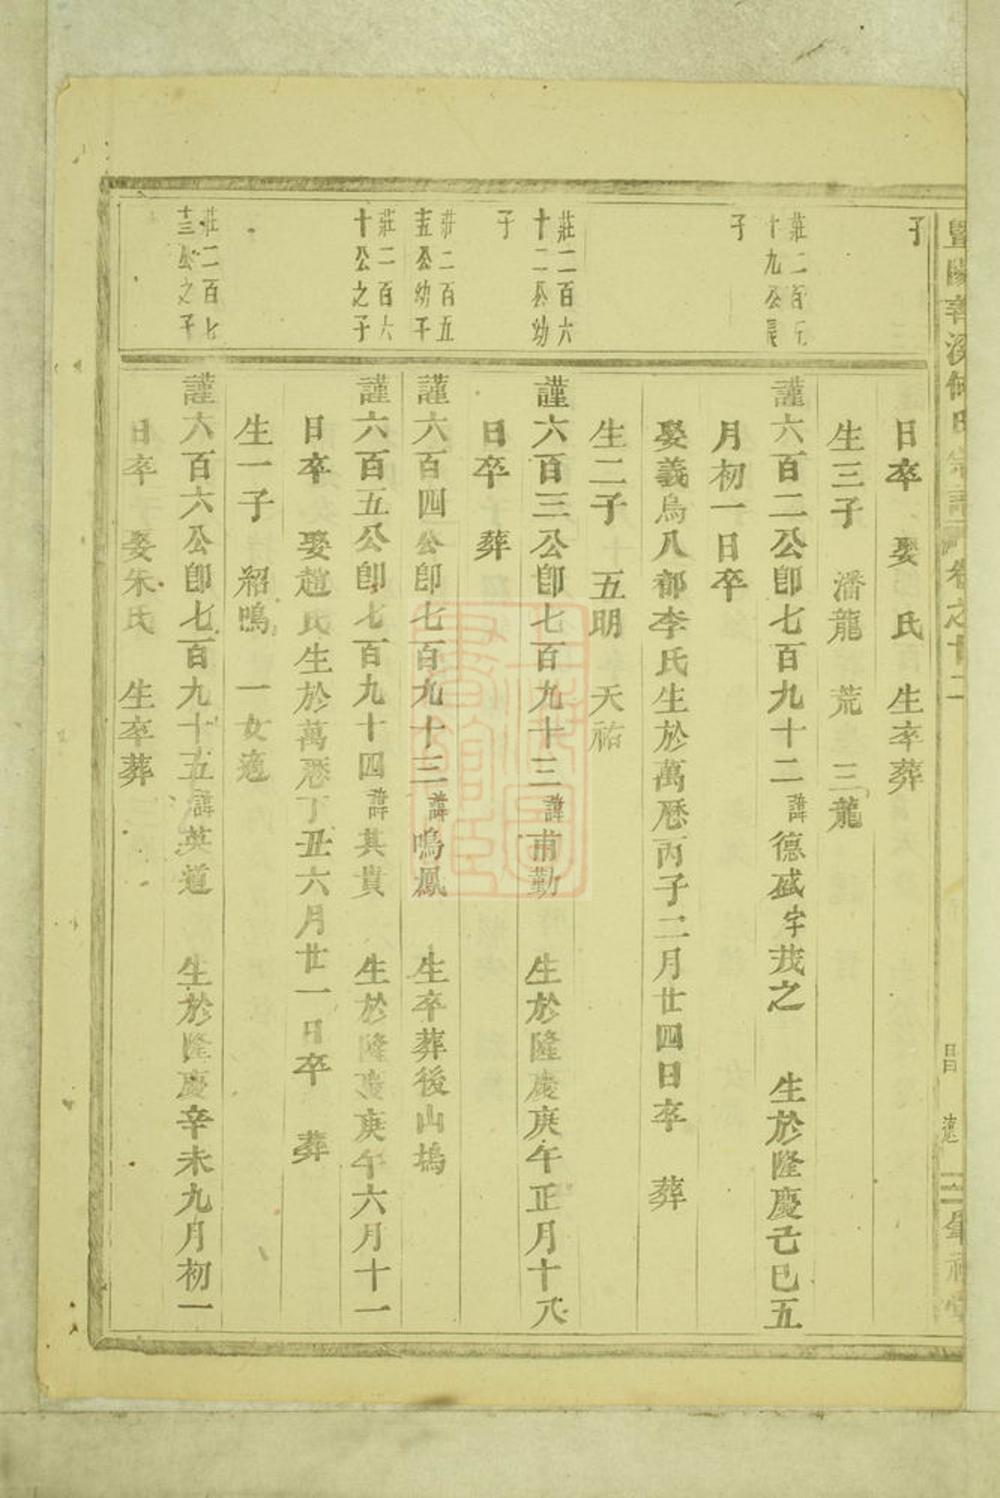 子
日卒　娶　氏　生卒葬
生三子　潘龍　荒　三龍
莊二百五
十九公長
子
謹六百二公卽七百九十二諱德盛字茂之　生於隆慶己巳五
月初一日卒
娶義烏八都李氏生於萬曆丙子二月廿四日卒　葬
生二子　五明　天祐
莊二百六
十二公幼
子
謹六百三公卽七百九十三諱甫勤　生於隆慶庚午正月十八
日卒　葬
莊二百五
十五公幼子
謹六百四公卽七百九十三諱鳴鳳　生卒葬後山塢
莊二百六
十公之子
謹六百五公卽七百九十四諱其貴　生於隆慶庚午六月十一
日卒　娶趙氏生於萬曆丁丑六月廿一日卒　葬
生一子　紹鳴　一女適
莊二百七
十三公之子
謹六百六公卽七百九十五諱英道　生於隆慶辛未九月初一
日卒　娶朱氏　生卒葬